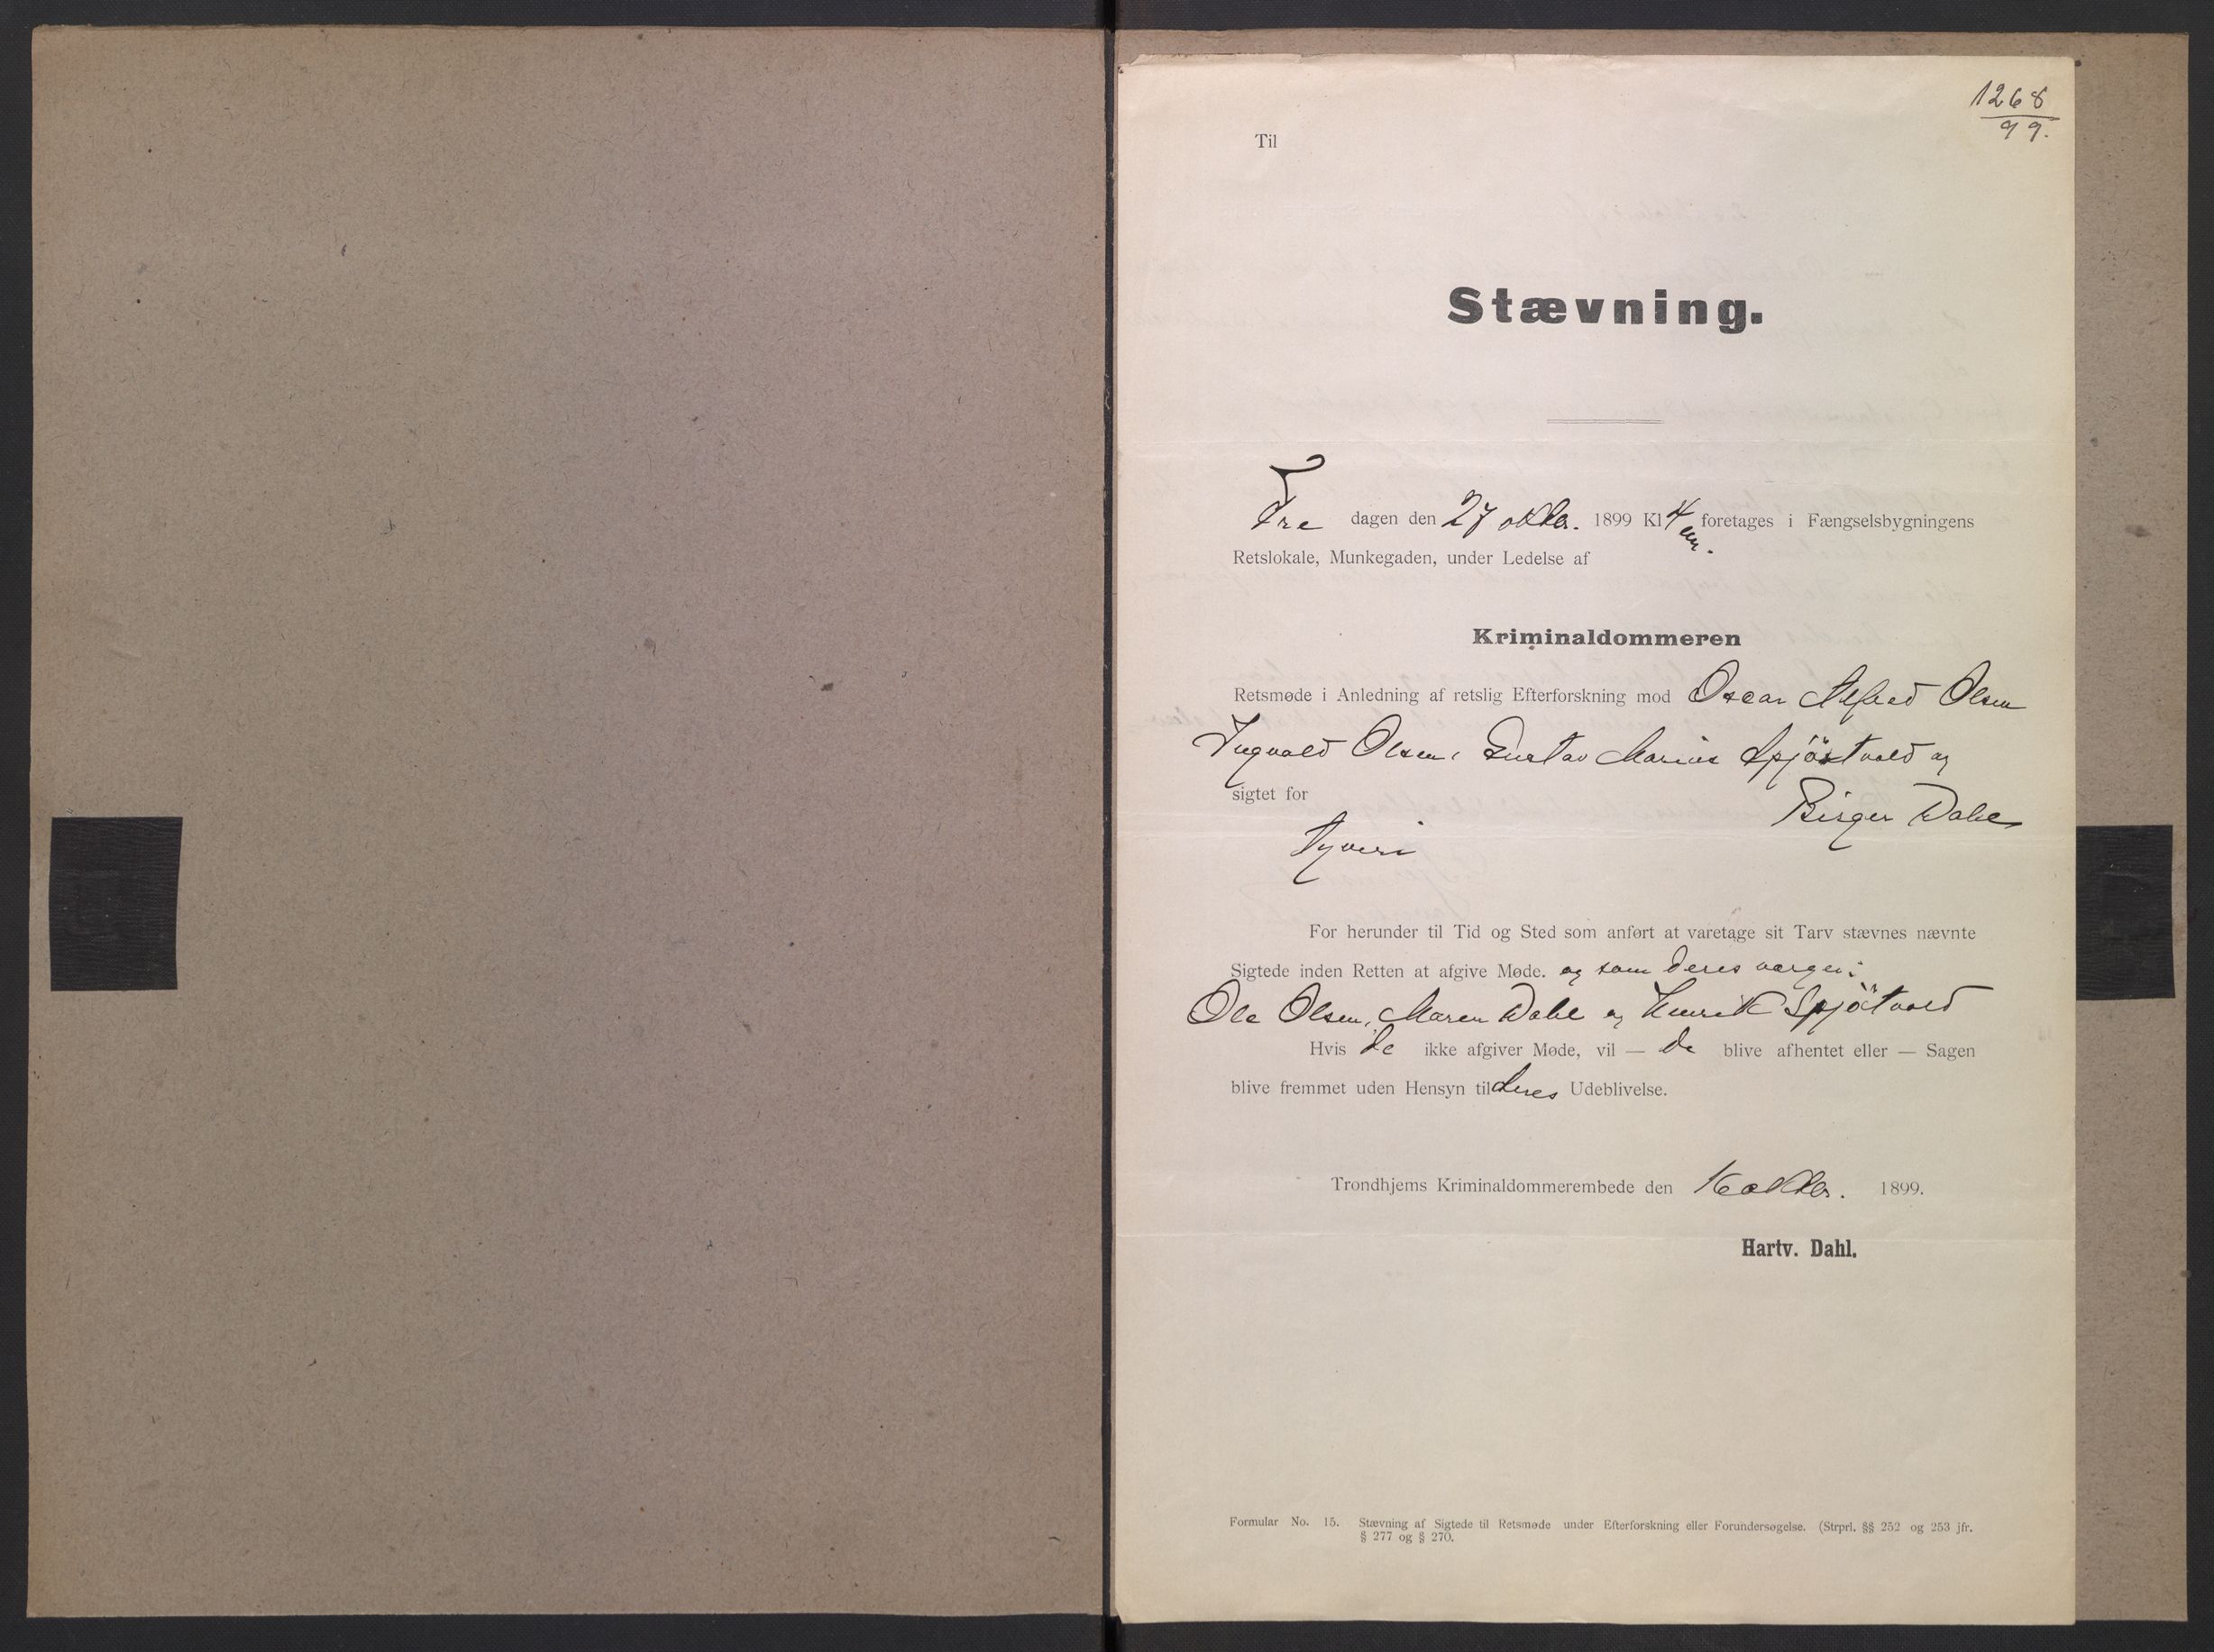 1268
99.
Til
Stævning.
Fredagen den 27 oktbr. 1899 Kl 4 em. foretages i Fængselsbygningens
Retslokale, Munkegaden, under Ledelse af
Kriminaldommeren
Retsmøde i Anledning af retslig Efterforskning mod Oscar Alfred Olsen
Ingvald Olsen, Gustav Marius Spjötvold og
sigtet for Birger Dahl
Tyveri
For herunder til Tid og Sted som anført at varetage sit Tarv stævnes nævnte
Sigtede inden Retten at afgive Møde. og som deres værger:
Ole Olsen, Maren Dahl og Henrik Spjötvold
Hvis de ikke afgiver Møde, vil — de blive afhentet eller — Sagen
blive fremmet uden Hensyn til deres Udeblivelse.
Trondhjems Kriminaldommerembede den 16 oktbr. 1899.
Hartv. Dahl.
Formular No. 15. Stævning af Sigtede til Retsmøde under Efterforskning eller Forundersøgelse. (Strprl. §§ 252 og 253 jfr.
§ 277 og § 270.